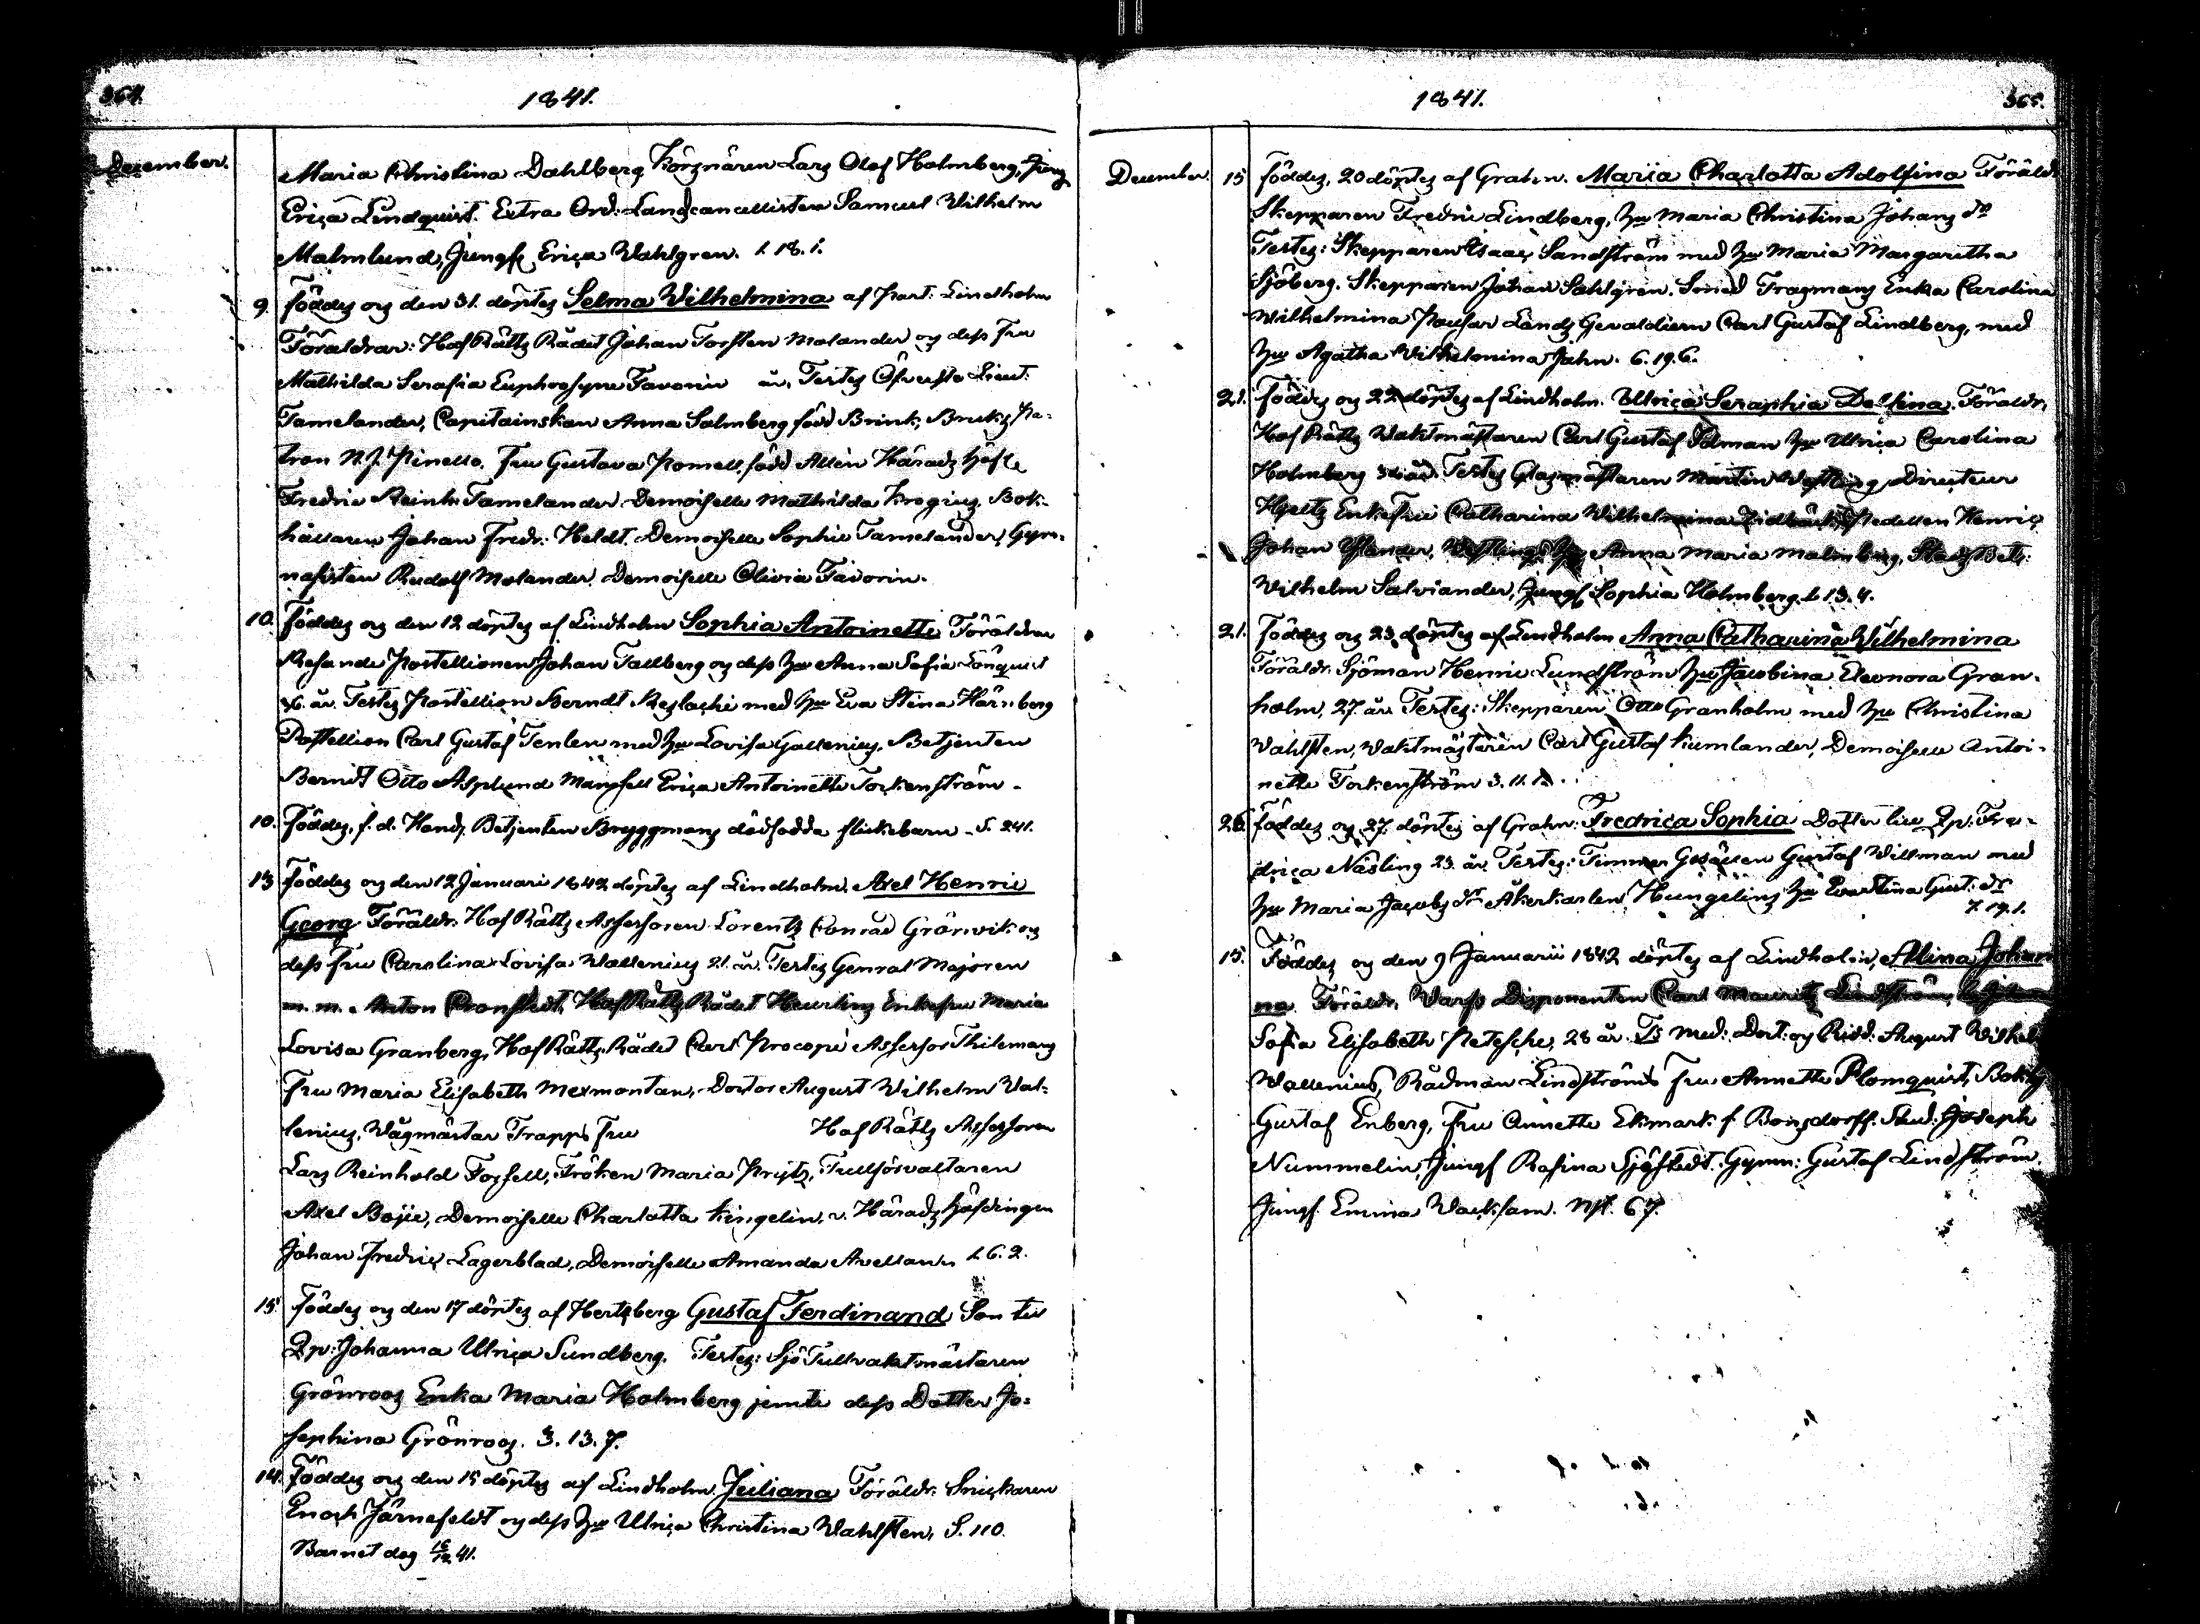 364.
1841.
December.
Maria Christina Dahlberg Körsnären Lars Olof Holmberg, Jungf
Erica Lindquist. Extra Ord: Landscancellisten Samuel Wilhelm
Malmlund, Jungf. Erica Wahlgren. 1. 18. 1.
9. Föddes og den 31. döptes Selma Wilhelmina af Past: Lindholm
Föräldrar: Hof Rätts Rådet Johan Torsten Molander og dess Fru
Mathilda Serafia Euphrosyne Favorin år, Testes Öfverste Lieut:
Tamelander, Capitainskan Anna Salmberg född Brink, Bruks Pa-
tron N. J. Pinello. Fru Gustava Ponnell, född Allén Härads Höfd.
Fredric Reinh. Tamelander Demoiselle Mathilda Krogius, Bok-
hållaren Johan Fredr: Heldt. Demoiselle Sophie Tamelander, Gym-
nasisten Rudolf Molander. Demoiselle Olivia Favorin.
10. Föddes og den 12 döptes af Lindholm Sophia Antoinette Föräldrar
Resande Postillionen Johan Tallberg og dess Hu Anna Sofia Lönquist
år. Testes Postillion Berndt med Hu Eva Stina Härnberg
Postillion Carl Gustaf Tenlen med Hu Lovisa Gallenius. Betjenten
Berndt Otto Asplund Mamsell Erica Antoinette Torkenström.
10. Föddes, f. d. Hands Betjenten Bryggmans dödfödda flickebarn. S. 241.
13 Föddes og den 12 Januari 1842 döptes af Lindholm. Axel Henric
Georg Föräldr. Hof Rätts Assessoren Lorentz Conrad Grönvik og
dess Fru Carolina Lovisa Wallenius 21. år. Testes Genral Majoren
m. m. Anton Cronstedt, Hof Rätts Rådet Heurlins Enkefru Maria
Lovisa Granberg, Hof Rätts Rådet Carl Procopé Assessor Thilemans
Fru Maria Elisabeth Mexmontan, Doctor August Wilhelm Wal-
lenius, Vågmästar Trapps Fru Hof Rätts Assessoren
Lars Reinhold Forsell, Fröken Maria Prytz, Tullförvaltaren
Axel Boije, Demoiselle Charlotta Kingelin, v. Härads Höfdingen
Johan Fredric Lagerblad, Demoiselle Amanda Avellan. 1. 6. 2.
15 Föddes og den 17 döptes af Hertzberg Gustaf Ferdinand Son till
Qp: Johanna Ulrica Sundberg. Testes: Sjö Tullvaktmästaren
Grönroos Enka Maria Holmberg jemte dess Dotter Jo-
sephina Grönroos. 3. 13. 7.
14. Föddes og den 15 döptes af Lindholm. Juliana Föräldr. Snickaren
Enoch Järnefeldt og dess Hu Ulrica Christina Wahlsten, S. 110.
Barnet dog 16/12 41.
1841.
365.
December.
15 Föddes, 20 döptes af Grahn. Maria Charlotta Adolfina Föräldr
Skepparen Fredric Lindberg, Hu Maria Christina Johans dr
Testes: Skepparen Isaac Sandström med Hu Maria Margaretha
Sjöberg. Skepparen Johan Sahlgren. Smed Fragmans Enka Carolina
Wilhelmina Pousar Länds Gevaldiern Carl Gustaf Lindberg, med
Hu Agatha Wilhelmina Jahn. 6. 19. 6.
21. Föddes og 22 döptes af Lindholm. Ulrica Seraphia Delfina. Föräldr,
Hof Rätts Waktmästaren Carl Gustaf Hu Ulrica Carolina
Holmberg år. Testes Glasmästaren Martin Westling, Directeur
Hjeltz Enkefru Catharina Wilhelmina Henric
Johan Anna Maria Malmberg, Stads Betj:
Wilhelm Salviander, Jungf Sophia Holmberg. 1. 13. 4.
21. Föddes og 23 döptes af Lindholm Anna Catharina Wilhelmina
Föräldr. Sjöman Henric Lundström Hu Jacobina Eleonora Gran-
holm, 27. år. Testes: Skepparen Otto Granholm med Hu Christina
Wahlsten, Waktmästaren Carl Gustaf Kumlander, Demoiselle Antoi-
nette Torkenström 3. 11. 1.
26. Föddes og 27. döptes af Grahn: Fredrica Sophia Dotter till Qp: Fre-
drica Näsling 23. år. Testes: Timmer Gesällen Gustaf Willman med
Hu Maria Jacobs dr Åkerkarlen Hungelins Hu Eva Stina Gust: dr
7. 19. 1.
15. Föddes og den 9 Januarii 1842 döptes af Lindholm, Alina Johan
na Föräldr. Varfs Disponenten Carl Mauritz Lindström,
Sofia Elisabeth Petesche, 28 år. Ts Med: Doct: og Ridd: August Wilhel
Wallenius, Rådman Lindströms Fru Annette Blomquist, Bokh
Gustaf Enberg, Fru Annette Ekmark f. Bonsdorff. Stud: Joseph
Nummelin, Jungf Rosina Sjöstedt. Gymn: Gustaf Lindström.
Jungf. Emina Wacksam. 67.